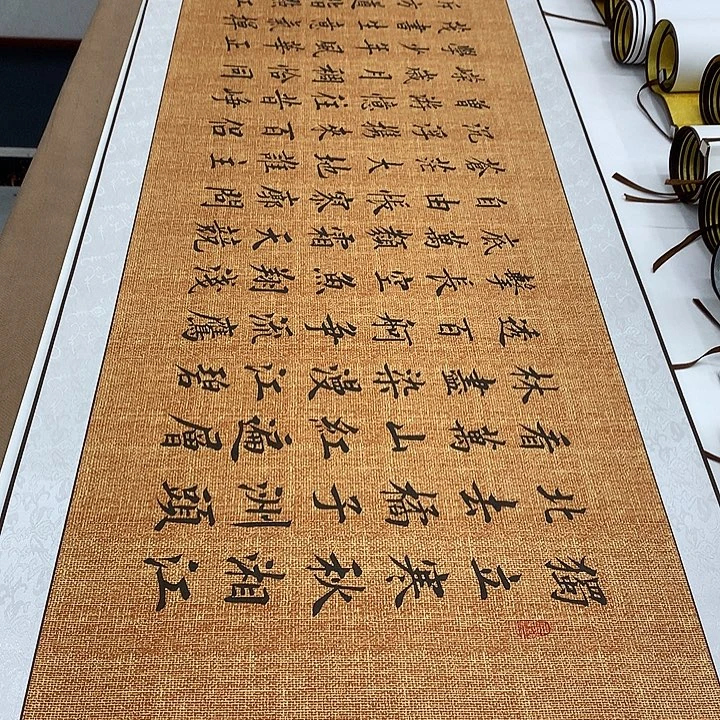 獨立寒秋湘江
北去橘子洲頭
看萬山紅遍層
林盡染漫江碧
透百舸爭流鷹
擊長空魚翔淺
底萬類霜天競
自由悵寥廓問
蒼茫大地誰主
沉浮攜來百侶
曾游憶往昔崢
嶸歲月稠恰同
學少年風華正
茂書生意氣揮